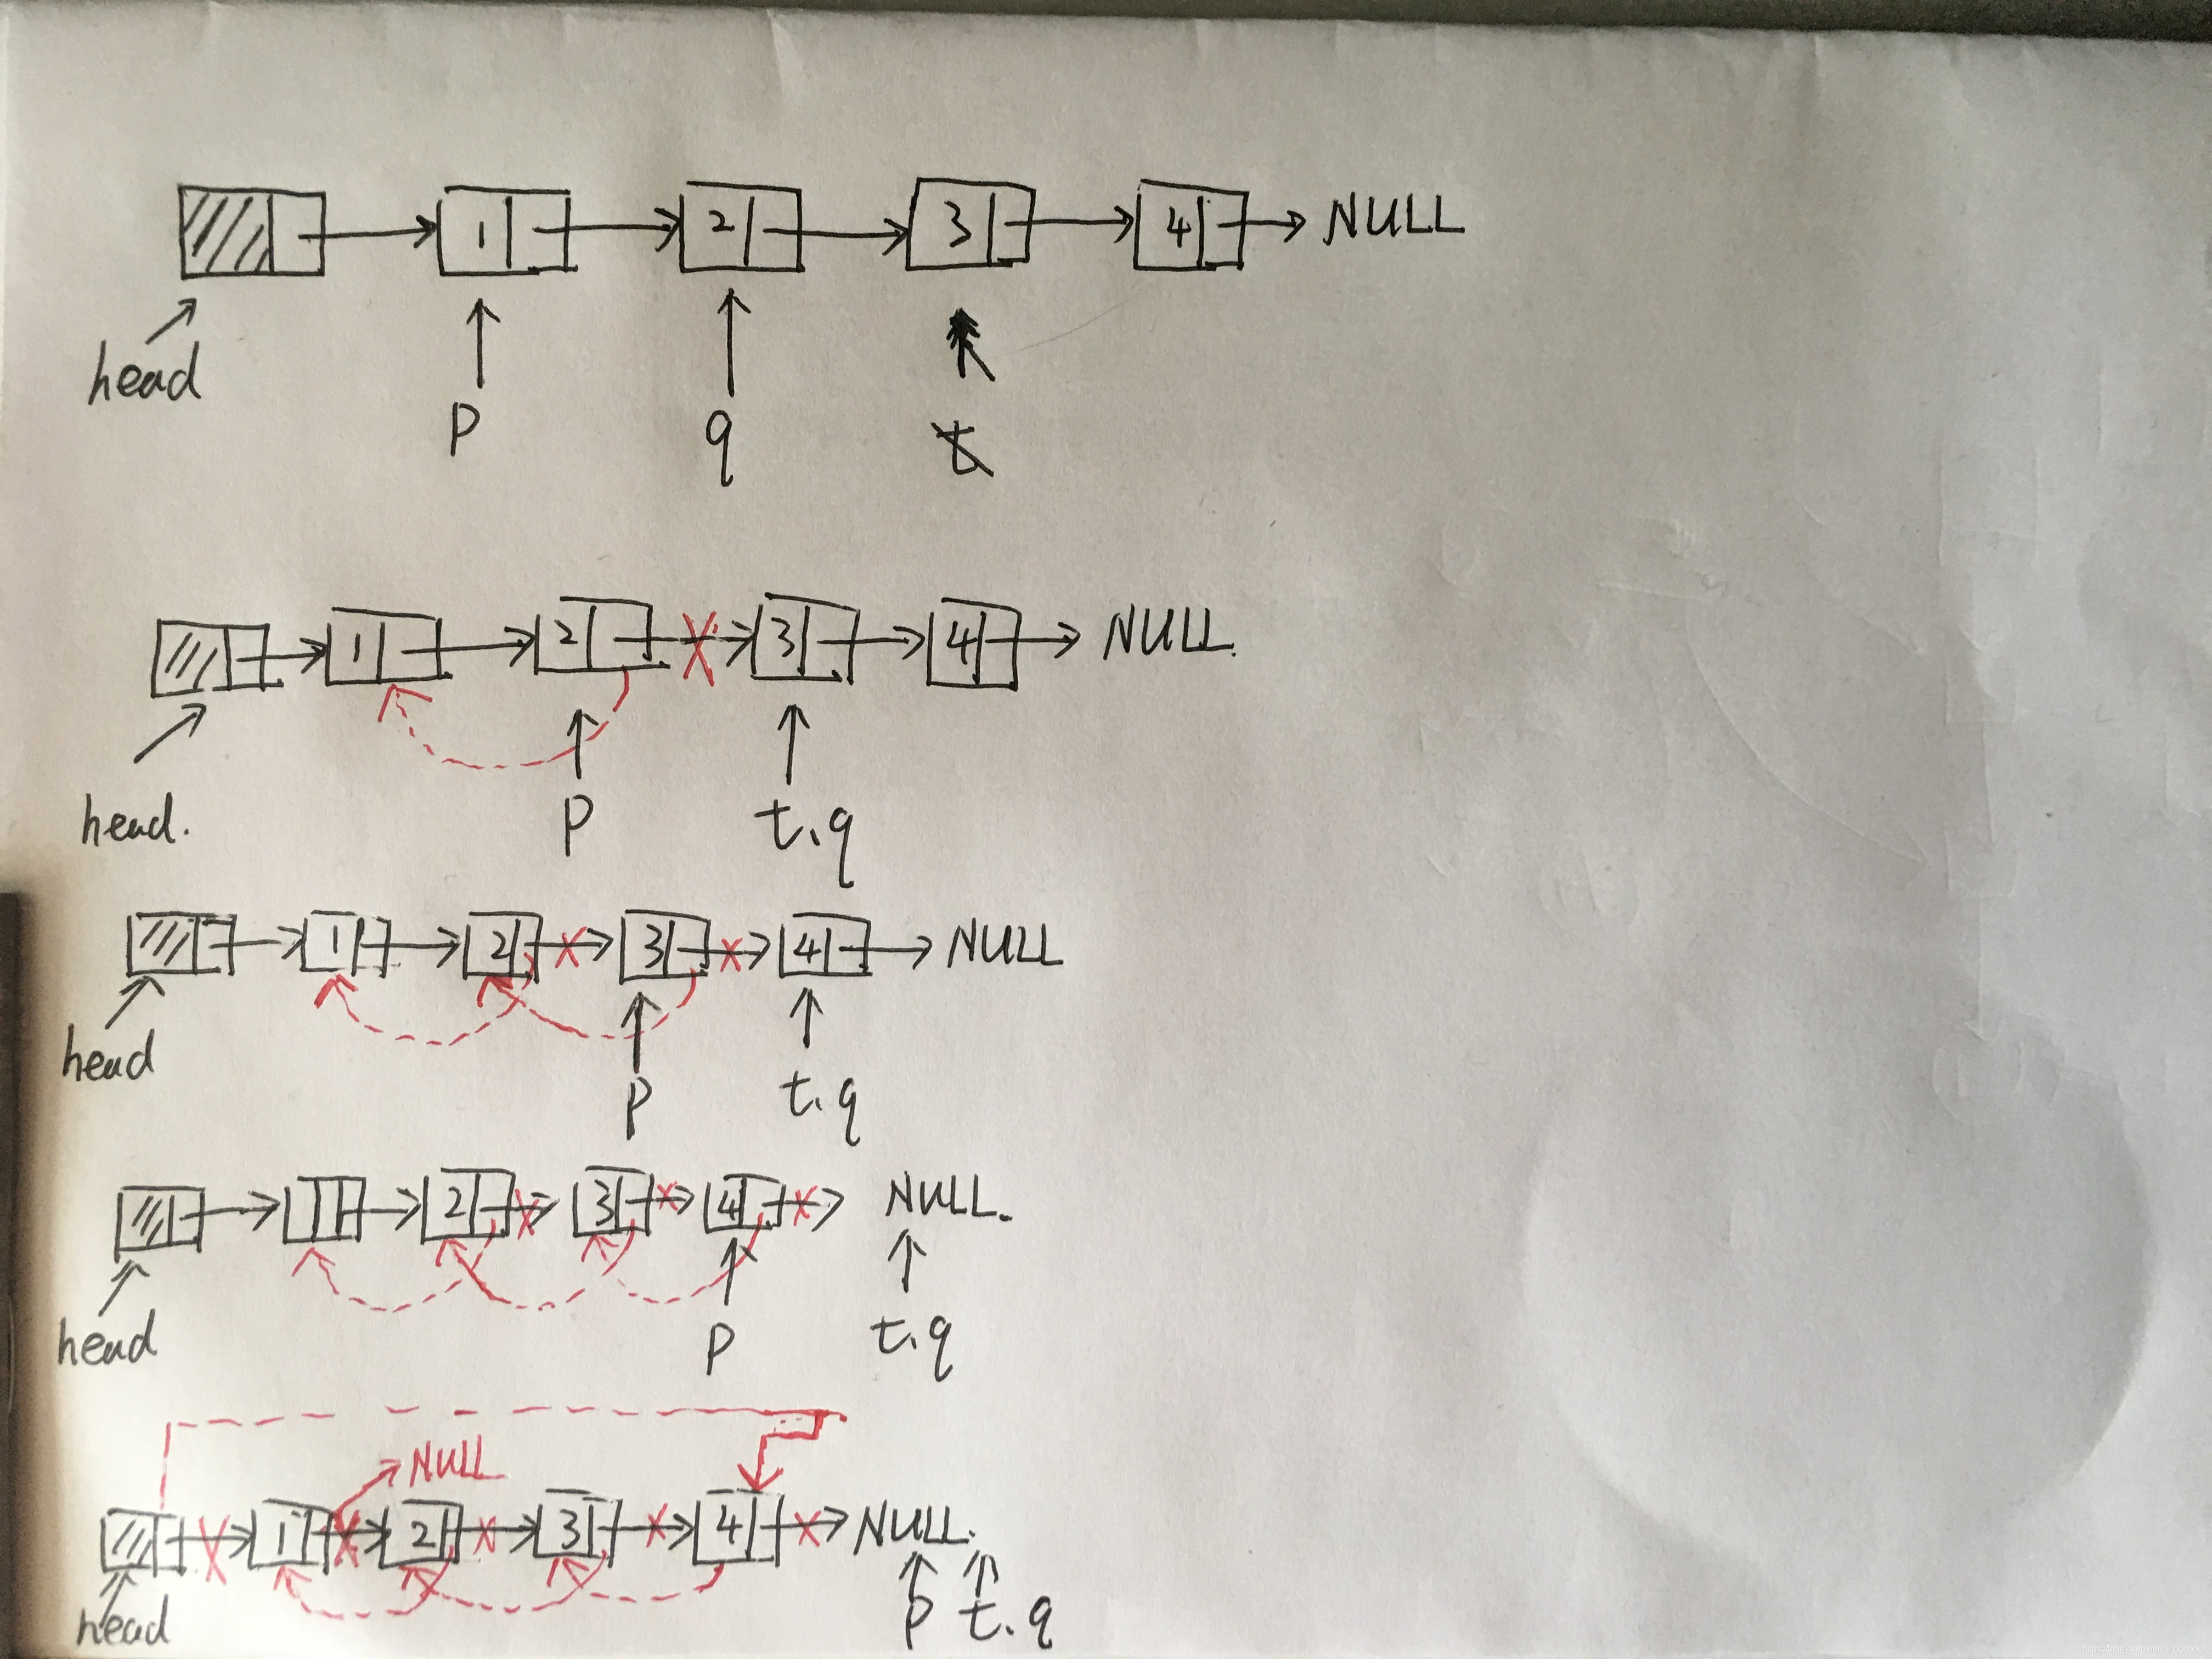 1 2 3 4 NULL
head
p q t
1 2 3 4 NULL.
head. p t.q
1 2 3 4 NULL
head p t.q
1 2 3 4 NULL.
head p t.q
NULL
1 2 3 4 NULL.
head p t.q